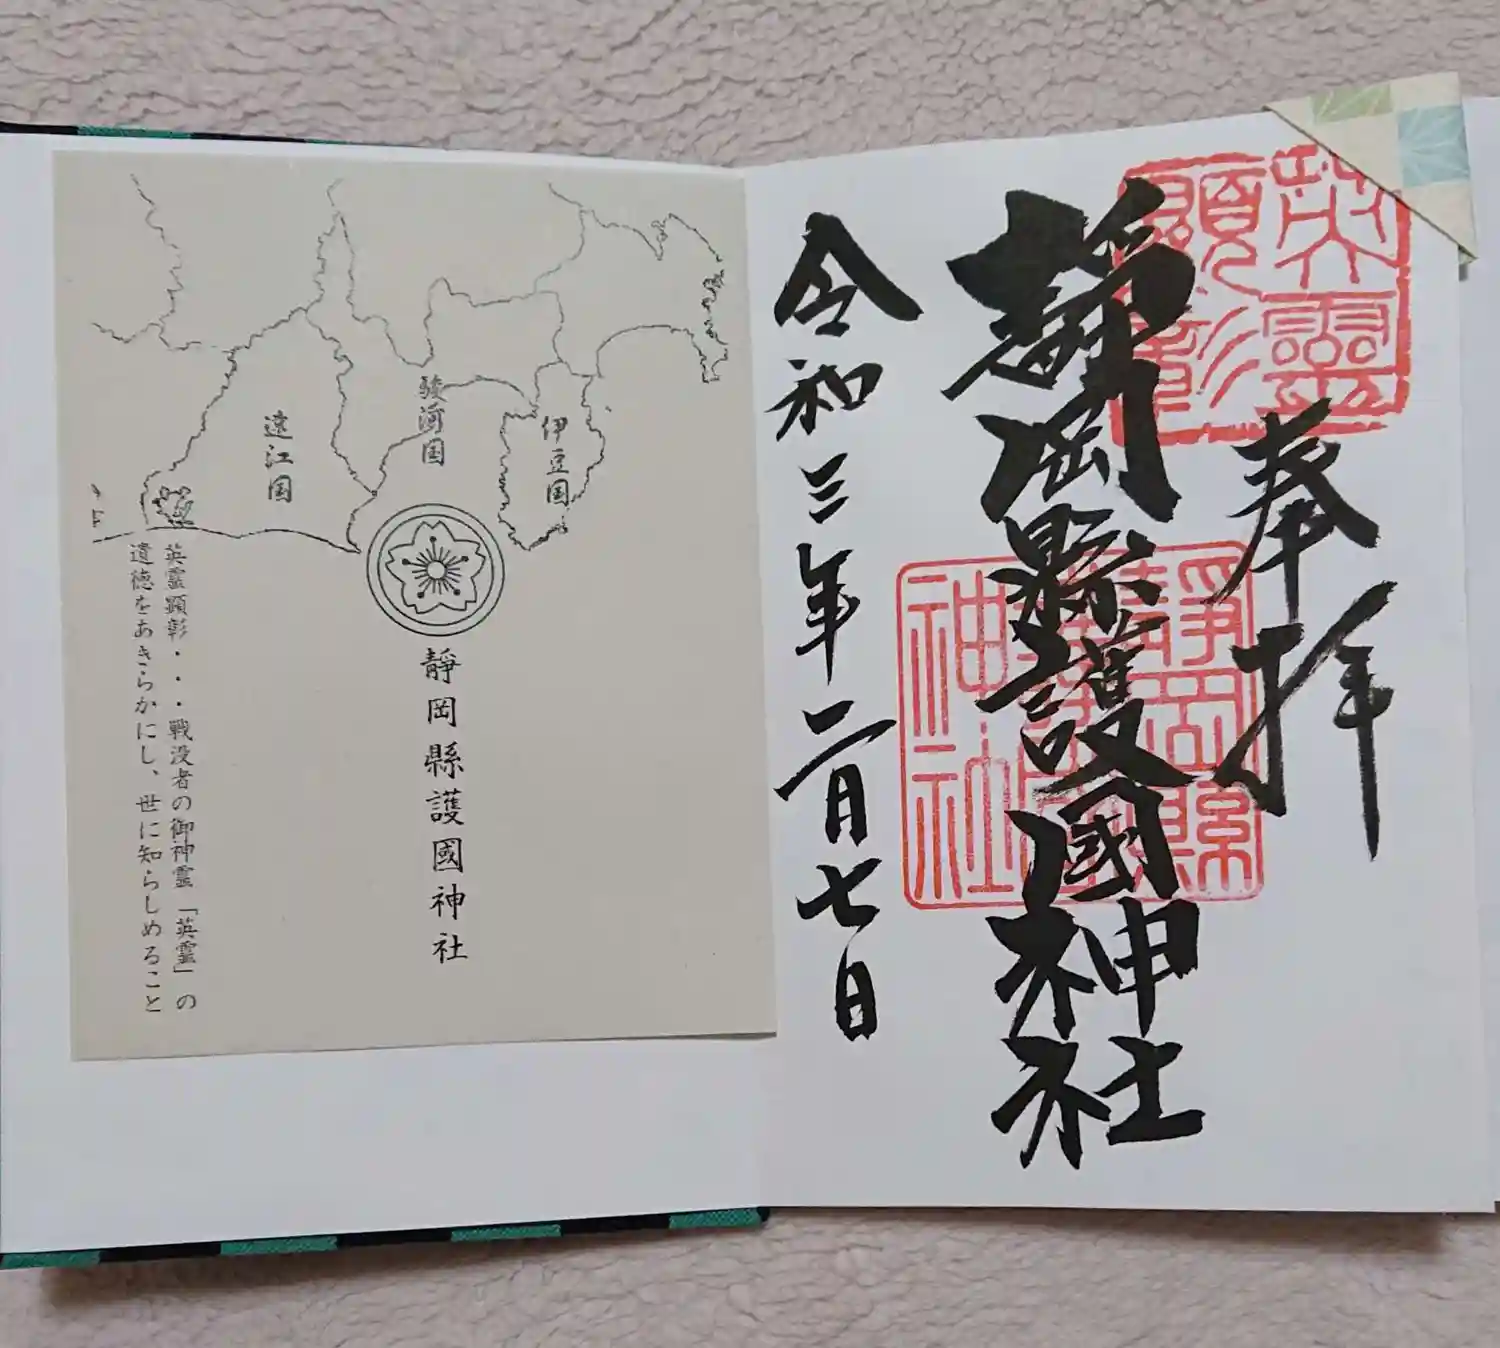 奉拝
靜岡縣護國神社
令和三年二月七日
英靈
顕彰
靜岡縣
護國
神社
駿河国
遠江国
伊豆国
靜岡縣護國神社
英霊顕彰・・・戦没者の御神霊「英霊」の
遺徳をあきらかにし、世に知らしめること